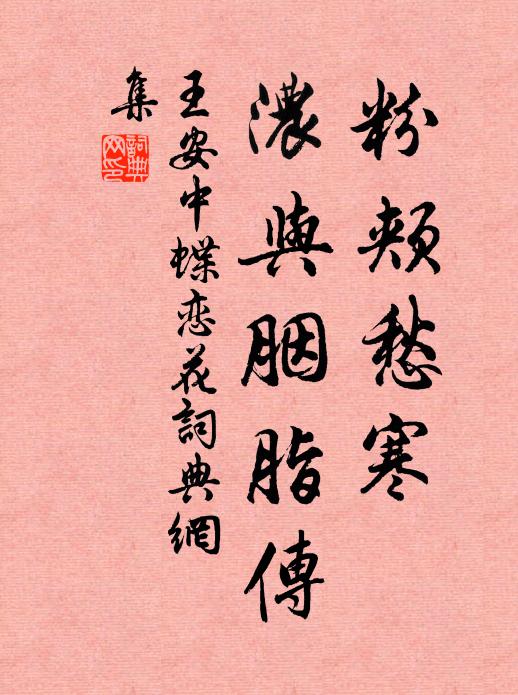 粉頰愁寒
濃與胭脂傅
王安中蝶恋花詞典網
集
詞典網印